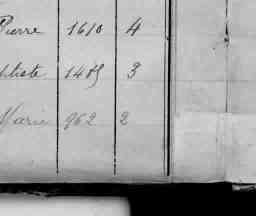 Pierre 1610 4
ptiste 1415 3
Marie 962 2